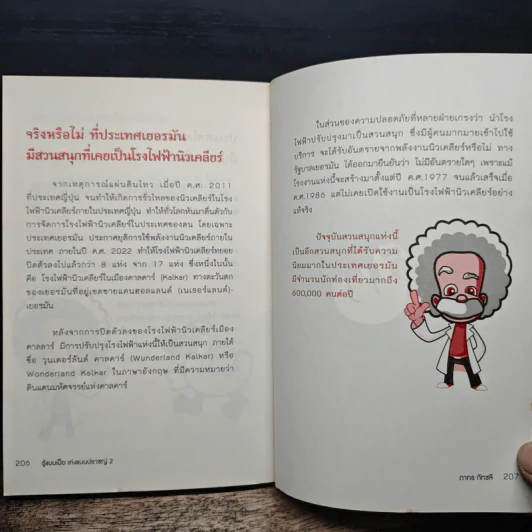 จริงหรือไม่ ที่ประเทศเยอรมัน
มีสวนสนุกที่เคยเป็นโรงไฟฟ้านิวเคลียร์
จากเหตุการณ์แผ่นดินไหว เมื่อปี ค.ศ. 2011
ที่ประเทศญี่ปุ่น จนทำให้เกิดการรั่วไหลของนิวเคลียร์ในโรง
ไฟฟ้านิวเคลียร์ภายในประเทศญี่ปุ่น ทำให้ทั่วโลกหันมาตื่นตัวกับ
การจัดการโรงไฟฟ้านิวเคลียร์ในประเทศของตน โดยเฉพาะ
ประเทศเยอรมัน ประกาศยุติการใช้พลังงานนิวเคลียร์ภายใน
ประเทศ ภายในปี ค.ศ. 2022 ทำให้โรงไฟฟ้านิวเคลียร์ทยอย
ปิดตัวลงไปแล้วกว่า 8 แห่ง จาก 17 แห่ง ซึ่งหนึ่งในนั้น
คือ โรงไฟฟ้านิวเคลียร์ในเมืองคาลคาร์ (Kalkar) ทางตะวันตก
ของเยอรมันที่อยู่เขตชายแดนฮอลแลนด์ (เนเธอร์แลนด์)-
เยอรมัน
หลังจากการปิดตัวลงของโรงไฟฟ้านิวเคลียร์เมือง
คาลคาร์ มีการปรับปรุงโรงไฟฟ้าแห่งนี้ให้เป็นสวนสนุก ภายใต้
ชื่อ วุนเดอร์ลันด์ คาลคาร์ (Wunderland Kalkar) หรือ
Wonderland Kalkar ในภาษาอังกฤษ ที่มีความหมายว่า
ดินแดนมหัศจรรย์แห่งคาลคาร์
206 รู้แบบเป็ด เก่งแบบปราชญ์ 2
ในส่วนของความปลอดภัยที่หลายฝ่ายเกรงว่า นำโรง
ไฟฟ้าปรับปรุงมาเป็นสวนสนุก ซึ่งมีผู้คนมากมายเข้าไปใช้
บริการ จะได้รับอันตรายจากพลังงานนิวเคลียร์หรือไม่ ทาง
รัฐบาลเยอรมัน ได้ออกมายืนยันว่า ไม่มีอันตรายใดๆ เพราะแม้
โรงงานแห่งนี้จะสร้างมาตั้งแต่ปี ค.ศ.1977 จนแล้วเสร็จเมื่อ
ค.ศ.1986 แต่ไม่เคยเปิดใช้งานเป็นโรงไฟฟ้านิวเคลียร์อย่าง
แท้จริง
ปัจจุบันสวนสนุกแห่งนี้
เป็นอีกสวนสนุกที่ได้รับความ
นิยมมากในประเทศเยอรมัน
มีจำนวนนักท่องเที่ยวมากถึง
600,000 คนต่อปี
ภากร ภัทรลี 207